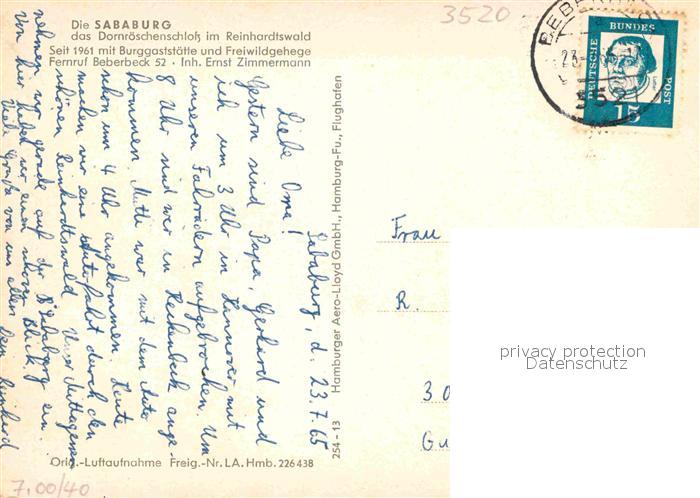 Die SABABURG
das Dornröschenschloß im Reinhardtswald
Seit 1961 mit Burggaststätte und Freiwildgehege
Fernruf Beberbeck 52 · Inh. Ernst Zimmermann
3520
DEUTSCHE
BUNDES
POST
15
Sababurg, d. 23.7.65
Liebe Oma!
Gestern sind Papa, Gerhard und
ich um 3 Uhr in Hannover mit
unseren Fahrrädern aufgebrochen. Um
8 Uhr sind wir in ange-
kommen. Mutti war mit dem Auto
schon um 4 Uhr angekommen. Heute
machen wir eine Autofahrt durch den
schönen Reinhardtswald. Unser Mittagessen
nehmen wir gerade auf der "Sababurg" ein.
Von hier haben wir einen schönen Blick.
Viele Grüße von uns allen Dein Reinhard
254-13 Hamburger Aero-Lloyd GmbH., Hamburg-Fu., Flughafen
Frau
R.
30
Gu
privacy protection
Datenschutz
Orig.-Luftaufnahme Freig.-Nr. LA. Hmb. 226438
7.00/40